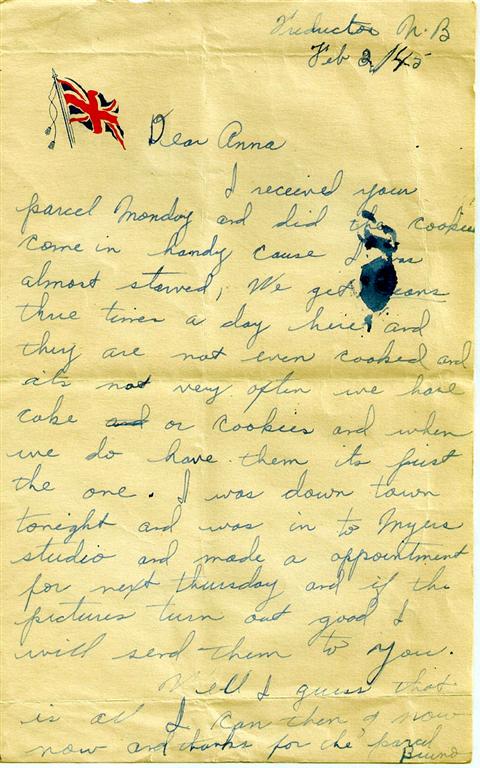 Freducton N.B
Feb 2/45
Dear Anna
I received your
parcel Monday and did the cookies
come in handy cause I was
almost starved, We get beans
three times a day here and
they are not even cooked and
its not very often we have
cake and or cookies and when
we do have them its just
the one. I was down town
tonight and was in to Myers
studio and made a appointment
for next Thursday and if the
pictures turn out good I
will send them to you.
Well I guess that
is all I can then of now
now and thanks for the parcel